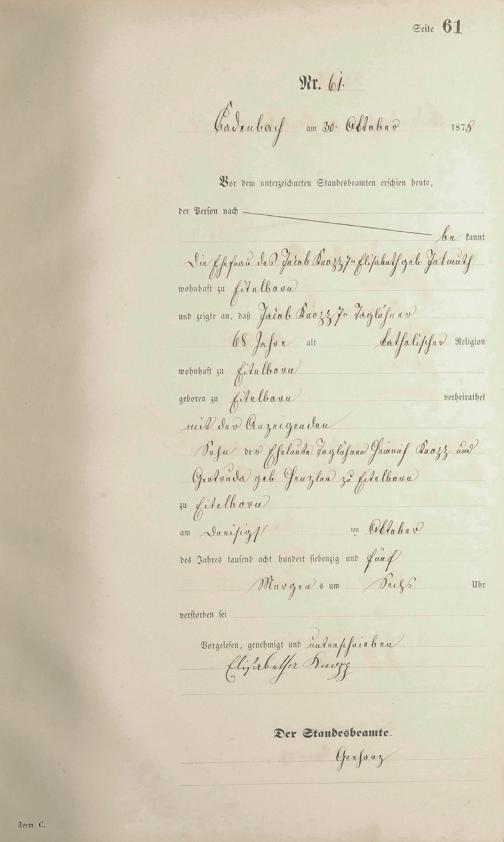 Seite 61
Nr. 61.
Cadenbach am 30. Oktober 1875
Vor dem unterzeichneten Standesbeamten erschien heute,
der Person nach
be kannt
Die Ehefrau des Jacob Knopp Elisabeth geb.
wohnhaft zu Eitelborn
und zeigte an, daß Jacob Knopp Taglöhner
68 Jahre alt katholischer Religion
wohnhaft zu Eitelborn
geboren zu Eitelborn verheirathet
mit der Anzeigenden
Sohn der Eheleute Taglöhner Heinrich Knopp und
Gertruda geb. zu Eitelborn
zu Eitelborn
am dreisigst ten Oktober
des Jahres tausend acht hundert siebenzig und fünf
Morgen s um Sechs Uhr
verstorben sei
Vorgelesen, genehmigt und unterschrieben
Elisabetha Knopp
Der Standesbeamte.
Form. C.